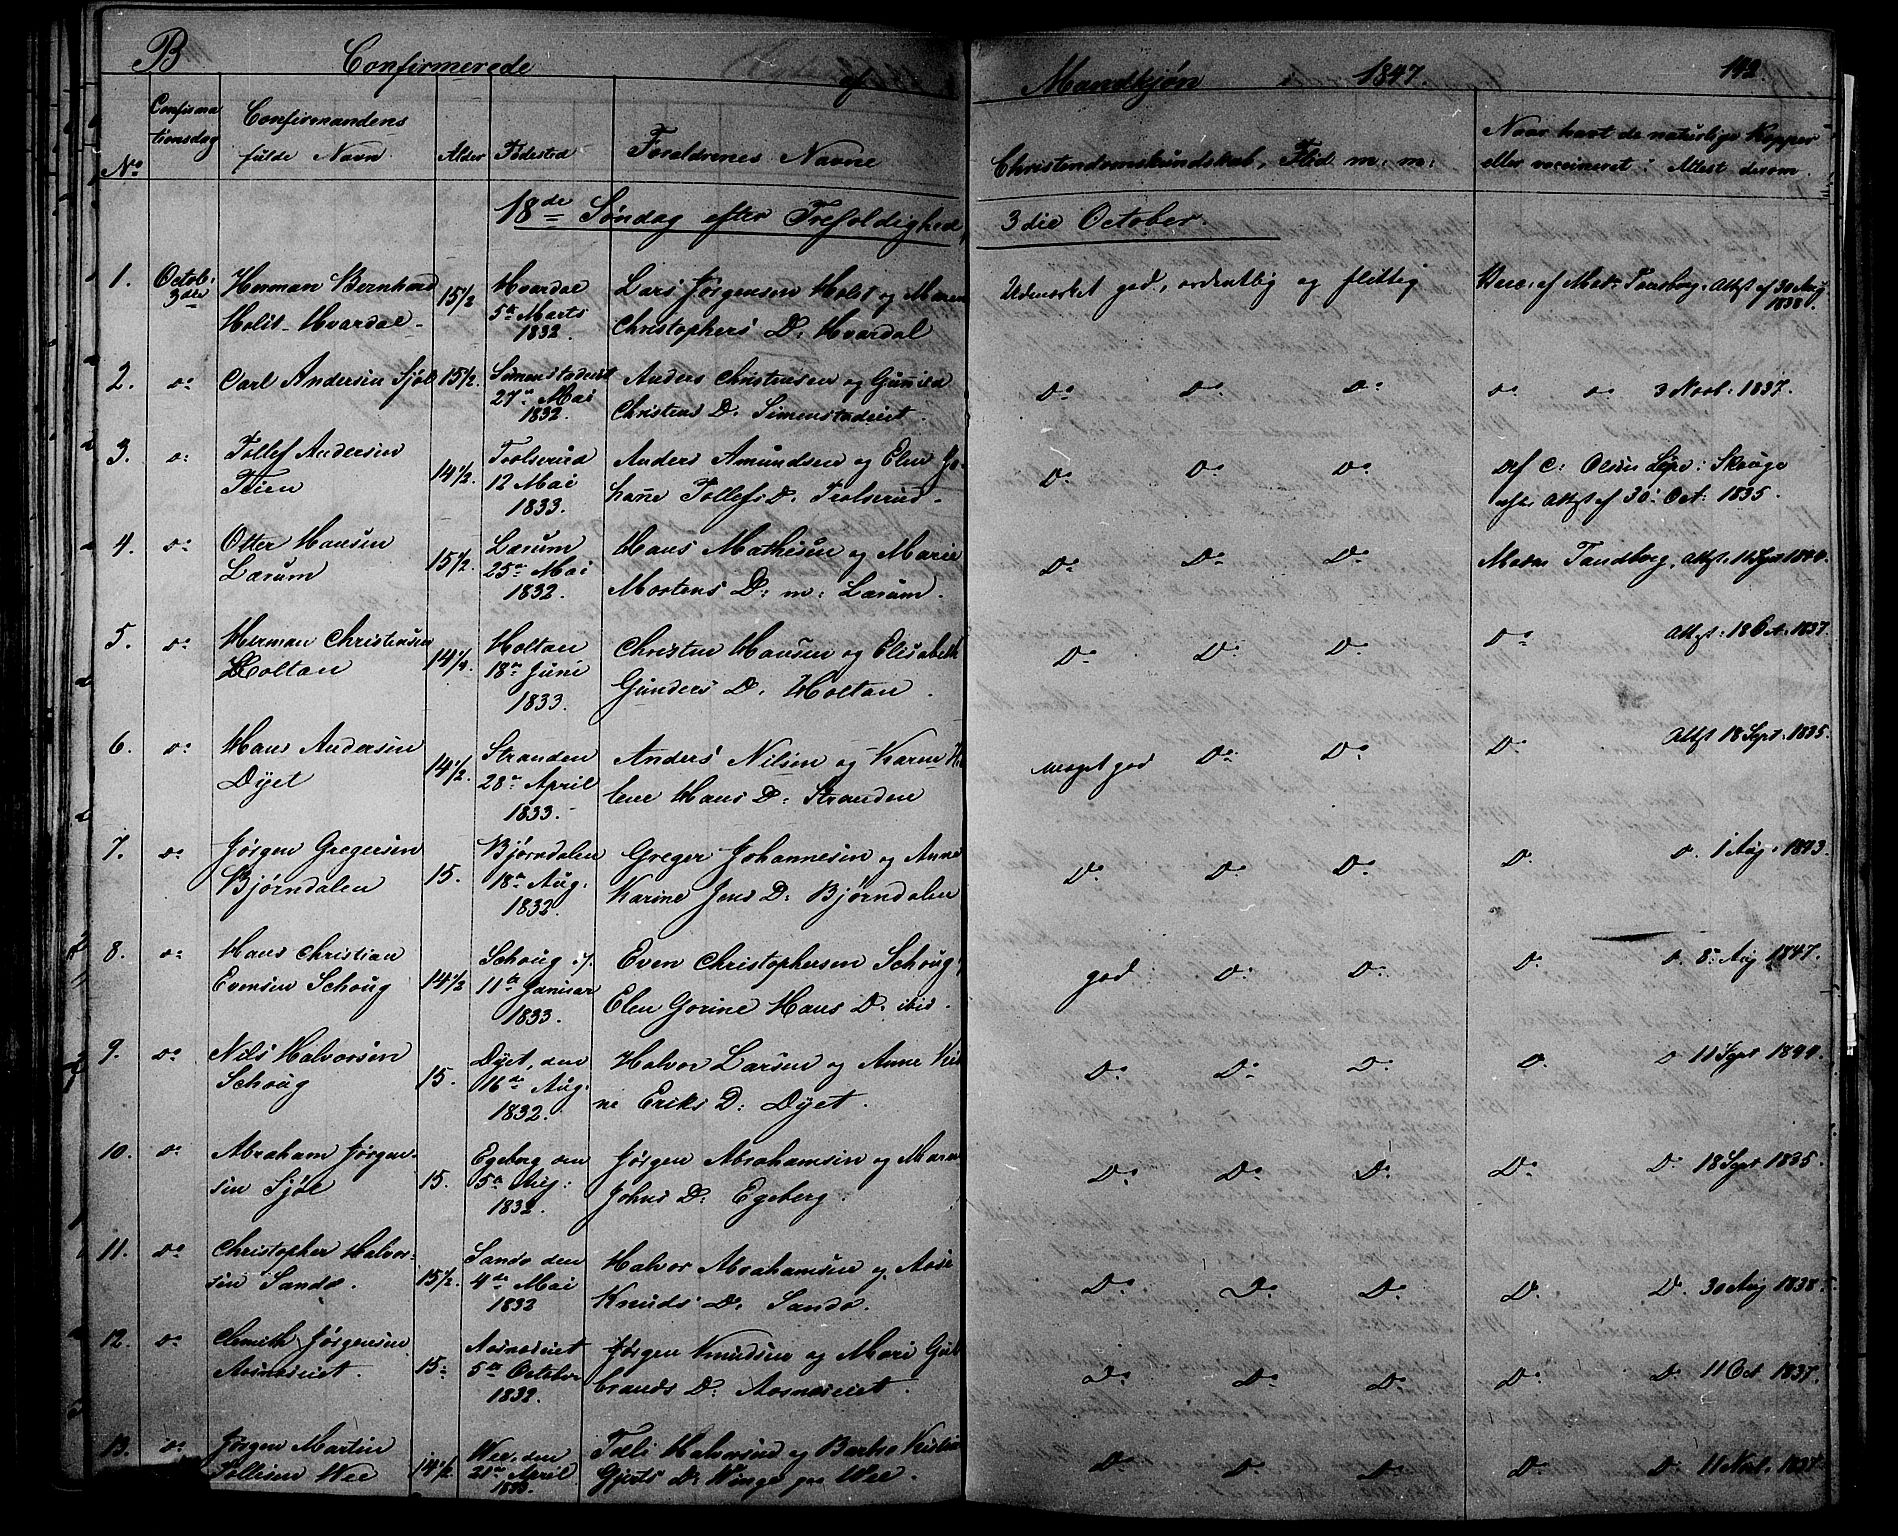 B Confirmerede af Mandkjøn 1847. 142
No
Confirmationsdag
Confirmandens fulde Navn
Alder
Fødested
Forældrenes Navne
Christendomskundskab, Flid m. m.
Naar havt de naturlige Kopper
eller vaccineret? Attest derom.
18de Søndag efter Trefoldighed, 3die October.
1. Octob. 3die
Herman Bernhard
Holst Hvardal
15 1/2
Hvardal
5te Marts
1832.
Lars Jørgensen Holst og Maren
Christophers D. Hvardal
Udmærket god, ordentlig og flittig
Vacc. af Mad. Tandberg, Attst af 30 Aug
1838.
2. do
Carl Andersen Sjøl
15 1/2.
27de Mai
1832.
Anders Christensen og Gunild
Christens D. Simenstadeiet.
Do Do Do
do do 3 Novb. 1837.
3. do
Tollef Andersen
Teien
14 1/2.
Trolserud
12 Mai
1833.
Anders Amundsen og Elen Jo-
hanne Tollefs D. Trolserud.
Do Do Do
af C. Olsen
Attst af 30 Oct. 1835.
4. do
Otter Hansen
Lærum
15 1/2.
Lærum
25de Mai
1832.
Hans Mathisen og Marie
Mortens D. m. Lærum.
Do Do Do
Madm Tandberg, Attst. 11 Sept 1844.
5. do
Herman Christensen
Holtan
14 1/4.
Holtan
18de Juni
1833.
Christen Hansen og Elisabeth
Gunders D. Holtan.
Do Do Do
Do Attst. 18 1837.
6. do
Hans Andersen
Dyet
14 1/2.
Stranden
28de April
1833.
Anders Nilsen og Karen He-
lene Hans D. Stranden
meget god Do Do
Do Attst 18 Sept. 1835.
7. do
Jørgen Gregersen
Bjørndalen
15.
Bjørndalen
18de Aug.
1832.
Greger Johannesen og Anne
Karine Jens D. Bjørndalen
Do Do Do
D. D. 1 Aug. 1843.
8. do
Hans Christian
Evensen Schoug
14 1/2
Schoug
11te Januar
1833.
Even Christophersen Schoug,
Elen Gorine Hans D. ibid.
god Do Do
Do D. 8 Aug 1847.
9. do
Nils Halvorsen
Schoug
15.
Dyet, den
16de Aug.
1832.
Halvor Larsen og Anne Kisti-
ne Eriks D. Dyet.
Do Do Do
D. D 11 Sept 1844.
10. do
Abraham Jørgen-
sen Sjøl
15.
Egeberg den
5te Aug.
1832.
Jørgen Abrahamsen og Maren
Johns D. Egeberg.
Do Do Do
Do D. 18 Sept 1835.
11. do
Christopher Halvor-
sen Sando.
15 1/2.
Sando den
4de Mai
1832
Halvor Abrahamsen og Aase
Knuds D. Sando.
Do Do Do
Do D. 30 Aug 1838.
12. do
Clemeth Jørgensen
Aasnæseiet.
15.
Aasnæseiet
5te October
1832.
Jørgen Knudsen og Mari Gul-
brands D. Aasnæseiet.
Do Do Do
Do D. 11 Oct 1837.
13. do
Jørgen Martin
Tollisen Wee
14 1/2
Wee, den
21de April
Tolli Halvorsen og Barbro Kirstine
Gjerts D. Winge paa Wee.
Do Do Do
Do D. 11 Novb. 1837.